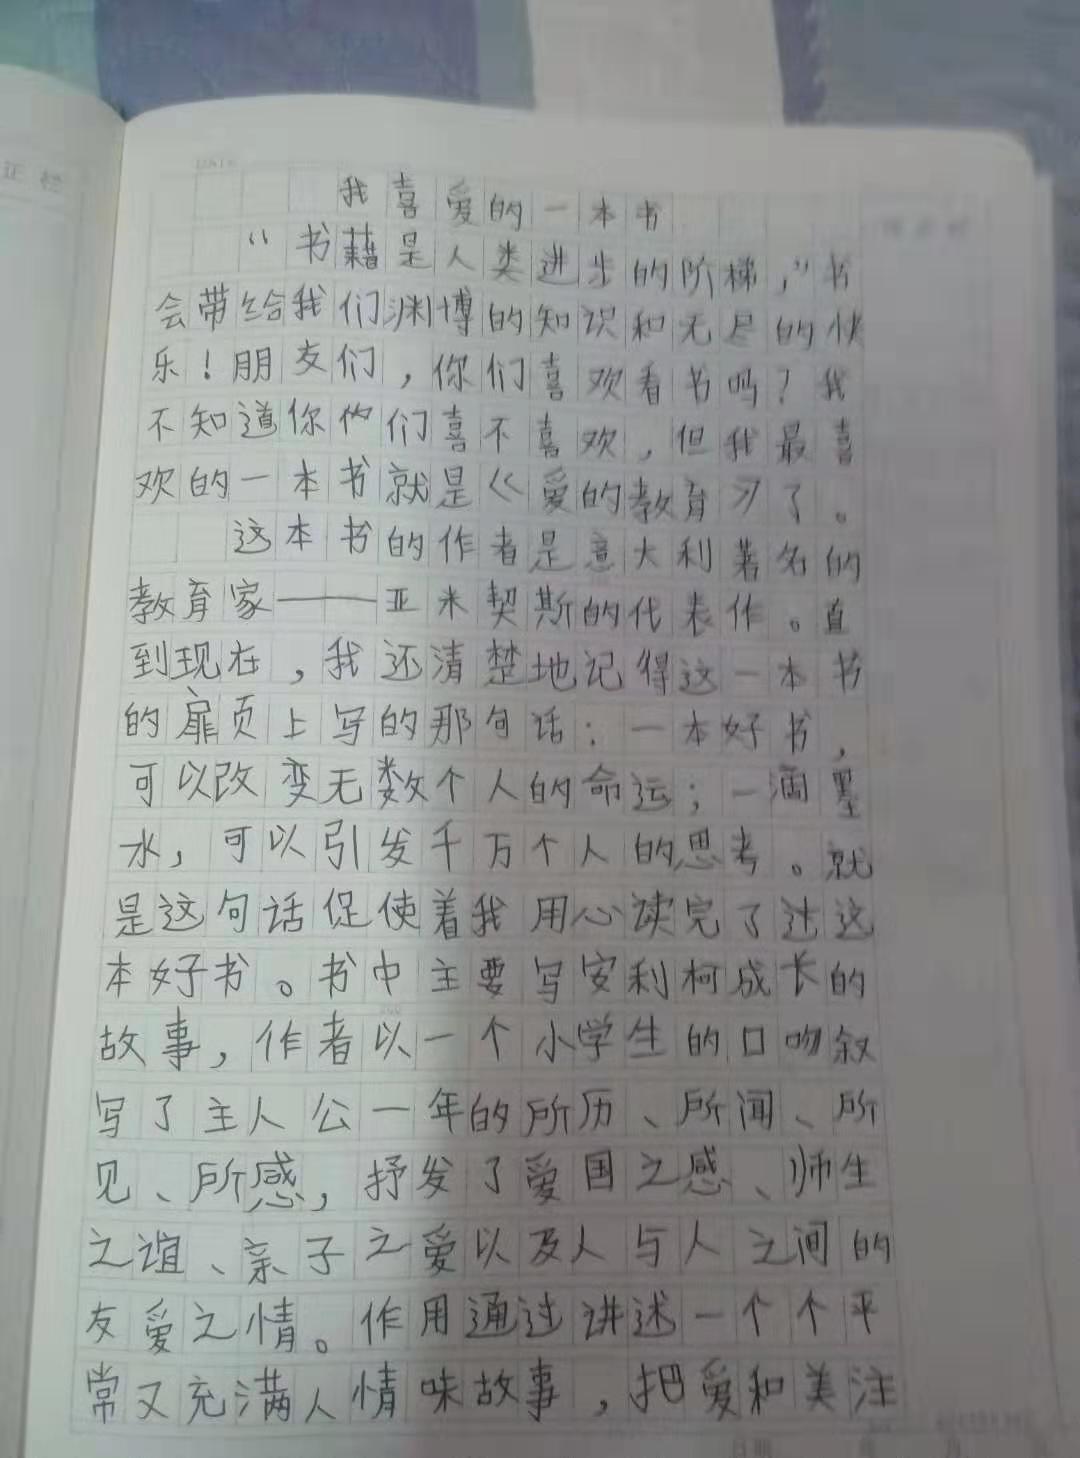 我喜爱的一本书
“书藉是人类进步的阶梯，”书
会带给我们渊博的知识和无尽的快
乐！朋友们，你们喜欢看书吗？我
不知道你们喜不喜欢，但我最喜
欢的一本书就是《爱的教育》了。
这本书的作者是意大利著名的
教育家——亚米契斯的代表作。直
到现在，我还清楚地记得这一本书
的扉页上写的那句话：一本好书，
可以改变无数个人的命运；一滴墨
水，可以引发千万个人的思考。就
是这句话促使着我用心读完了这
本好书。书中主要写安利柯成长的
故事，作者以一个小学生的口吻叙
写了主人公一年的所历、所闻、所
见、所感，抒发了爱国之感、师生
之谊、亲子之爱以及人与人之间的
友爱之情。作用通过讲述一个个平
常又充满人情味故事，把爱和美注